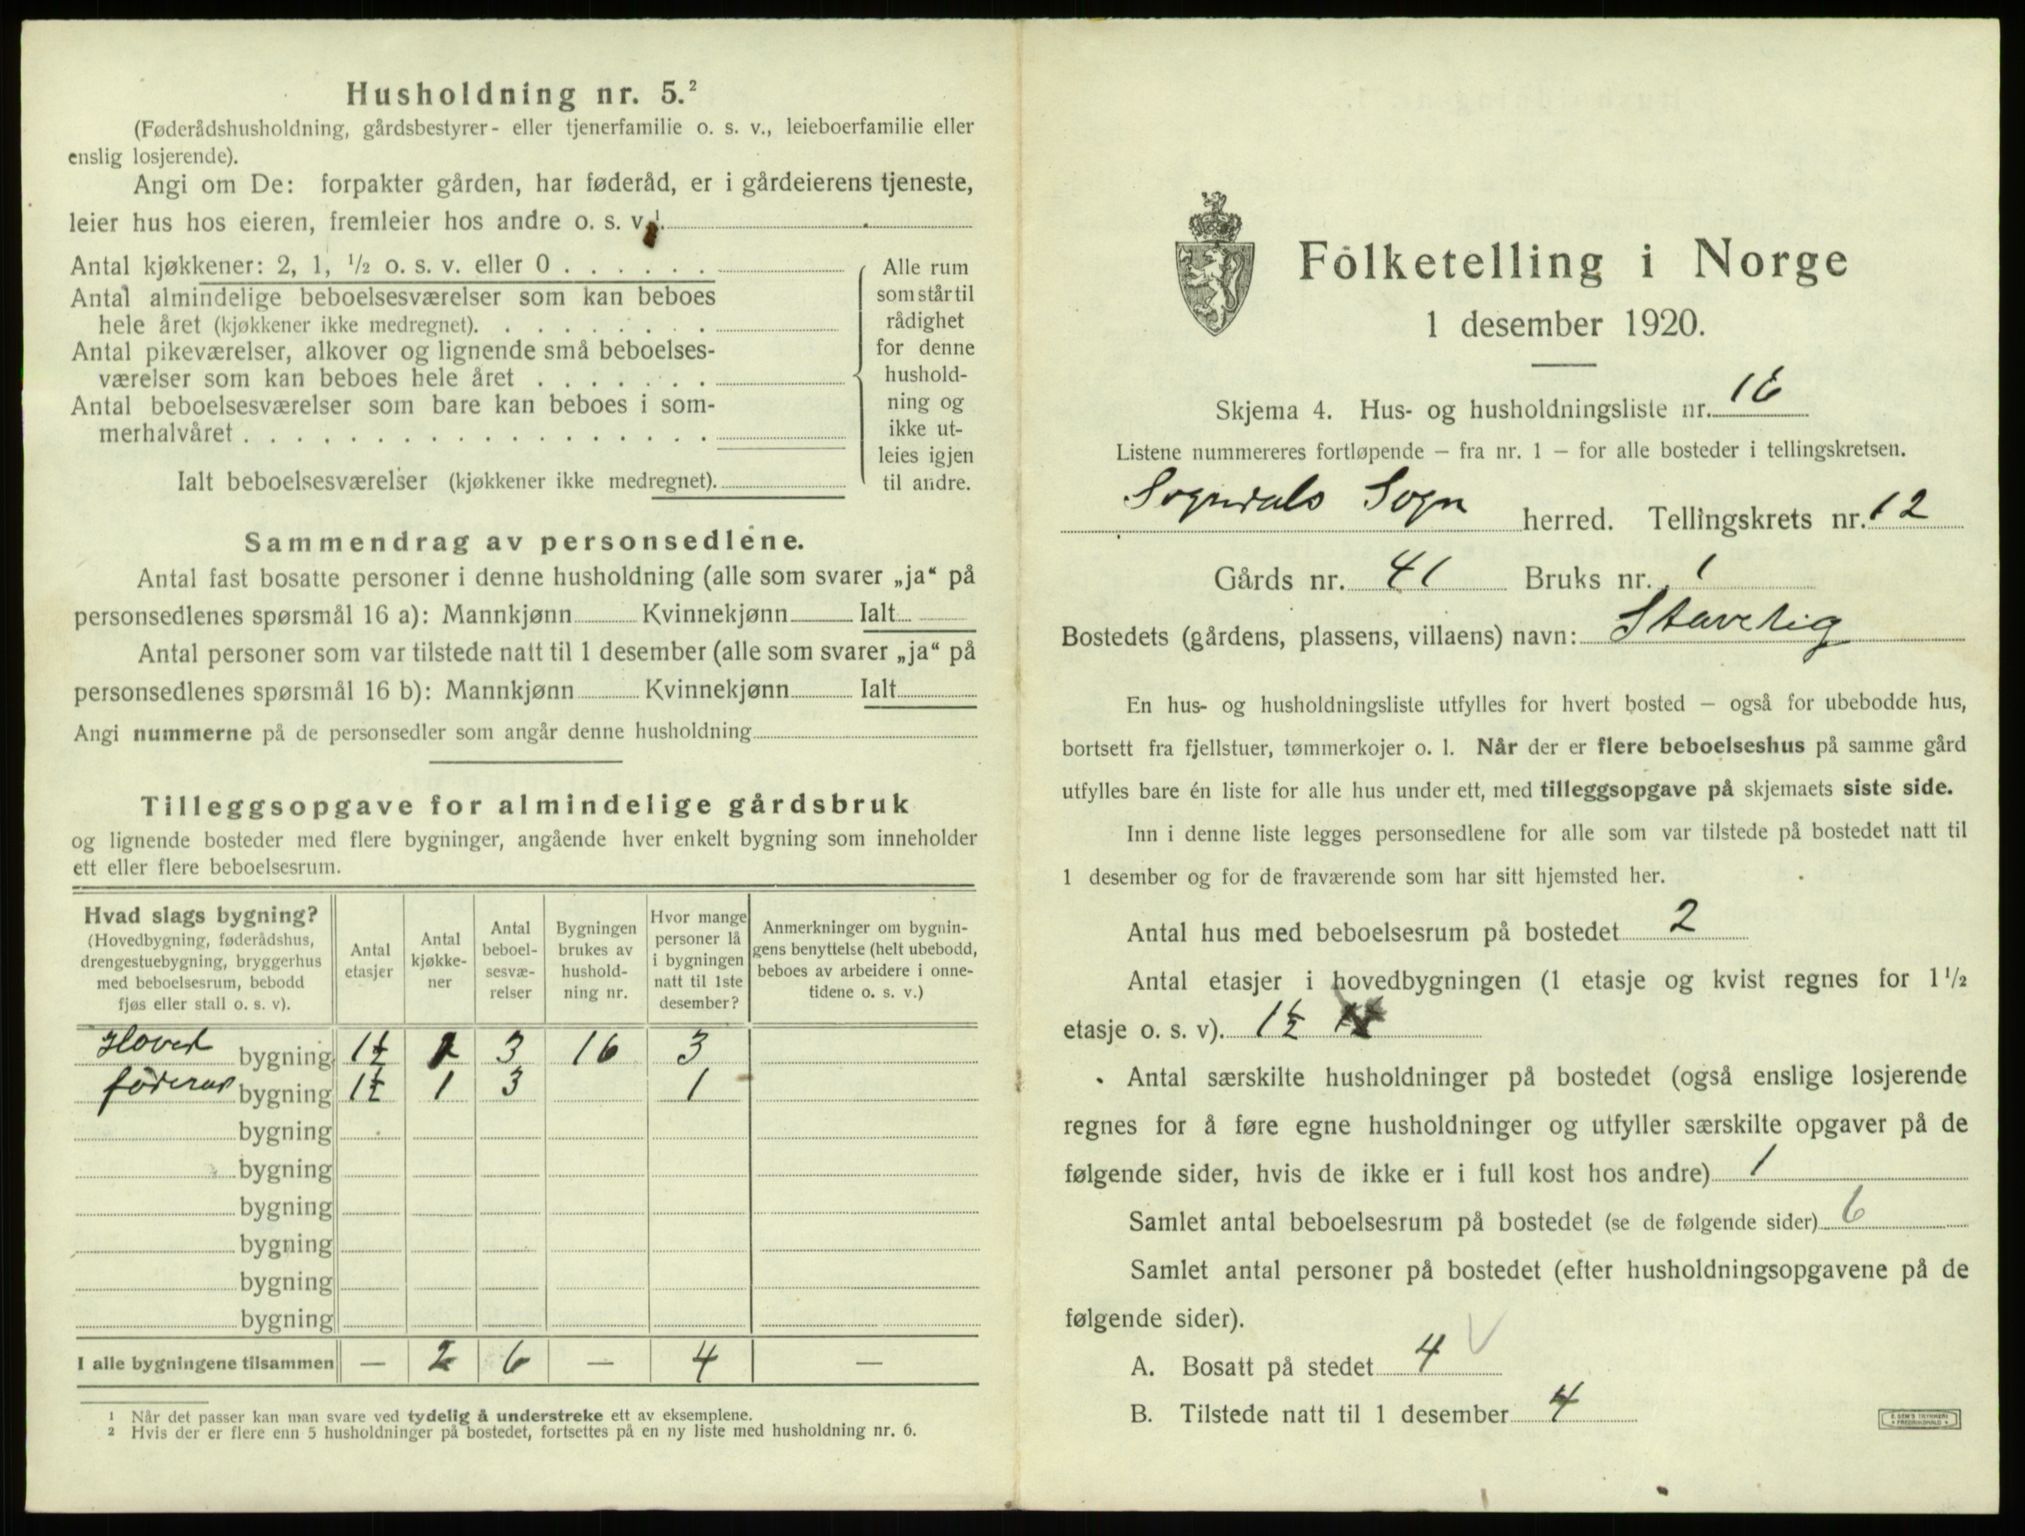 Husholdning nr. 5.²
(Føderådshusholdning, gårdsbestyrer- eller tjenerfamilie o. s. v., leieboerfamilie eller
enslig losjerende).
Angi om De: forpakter gården, har føderåd, er i gårdeierens tjeneste,
leier hus hos eieren, fremleier hos andre o. s. v.¹
Antal kjøkkener: 2, 1, ½ o. s. v. eller 0 . . . . . .
Antal almindelige beboelsesværelser som kan beboes
hele året (kjøkkener ikke medregnet). . . . . . . . .
Antal pikeværelser, alkover og lignende små beboelses-
værelser som kan beboes hele året . . . . . . .
Antal beboelsesværelser som bare kan beboes i som-
merhalvåret . . . . . . . . . . . . . . . . . .
Ialt beboelsesværelser (kjøkkener ikke medregnet).
Alle rum
som står til
rådighet
for denne
hushold-
ning og
ikke ut-
leies igjen
til andre.
Sammendrag av personsedlene.
Antal fast bosatte personer i denne husholdning (alle som svarer „ja“ på
personsedlenes spørsmål 16 a): Mannkjønn Kvinnekjønn Ialt
Antal personer som var tilstede natt til 1 desember (alle som svarer „ja“ på
personsedlenes spørsmål 16 b): Mannkjønn Kvinnekjønn Ialt
Angi nummerne på de personsedler som angår denne husholdning
Tilleggsopgave for almindelige gårdsbruk
og lignende bosteder med flere bygninger, angående hver enkelt bygning som inneholder
ett eller flere beboelsesrum.
Hvad slags bygning?
(Hovedbygning, føderådshus,
drengestuebygning, bryggerhus
med beboelsesrum, bebodd
fjøs eller stall o. s. v).
Antal
etasjer
Antal
kjøkke-
ner
Antal
beboel-
sesvæ-
relser
Bygningen
brukes av
hushold-
ning nr.
Hvor mange
personer lå
i bygningen
natt til 1ste
desember?
Anmerkninger om bygnin-
gens benyttelse (helt ubebodd,
beboes av arbeidere i onne-
tidene o. s. v.)
Hoved bygning 1½ 1 3 16 3
føderaps bygning 1½ 1 3 1
bygning
bygning
bygning
bygning
bygning
bygning
I alle bygningene tilsammen — 2 6 — 4 —
¹ Når det passer kan man svare ved tydelig å understreke ett av eksemplene.
² Hvis der er flere enn 5 husholdninger på bostedet, fortsettes på en ny liste med husholdning nr. 6.
Folketelling i Norge
1 desember 1920.
Skjema 4. Hus- og husholdningsliste nr. 16
Listene nummereres fortløpende – fra nr. 1 – for alle bosteder i tellingskretsen.
Sogndals Sogn herred. Tellingskrets nr. 12
Gårds nr. 41 Bruks nr. 1
Bostedets (gårdens, plassens, villaens) navn: Stavelig
En hus- og husholdningsliste utfylles for hvert bosted – også for ubebodde hus,
bortsett fra fjellstuer, tømmerkojer o. l. Når der er flere beboelseshus på samme gård
utfylles bare én liste for alle hus under ett, med tilleggsopgave på skjemaets siste side.
Inn i denne liste legges personsedlene for alle som var tilstede på bostedet natt til
1 desember og for de fraværende som har sitt hjemsted her.
Antal hus med beboelsesrum på bostedet 2
Antal etasjer i hovedbygningen (1 etasje og kvist regnes for 1½
etasje o. s. v). 1½
Antal særskilte husholdninger på bostedet (også enslige losjerende
regnes for å føre egne husholdninger og utfyller særskilte opgaver på de
følgende sider, hvis de ikke er i full kost hos andre) 1
Samlet antal beboelsesrum på bostedet (se de følgende sider) 6
Samlet antal personer på bostedet (efter husholdningsopgavene på de
følgende sider).
A. Bosatt på stedet 4
B. Tilstede natt til 1 desember 4